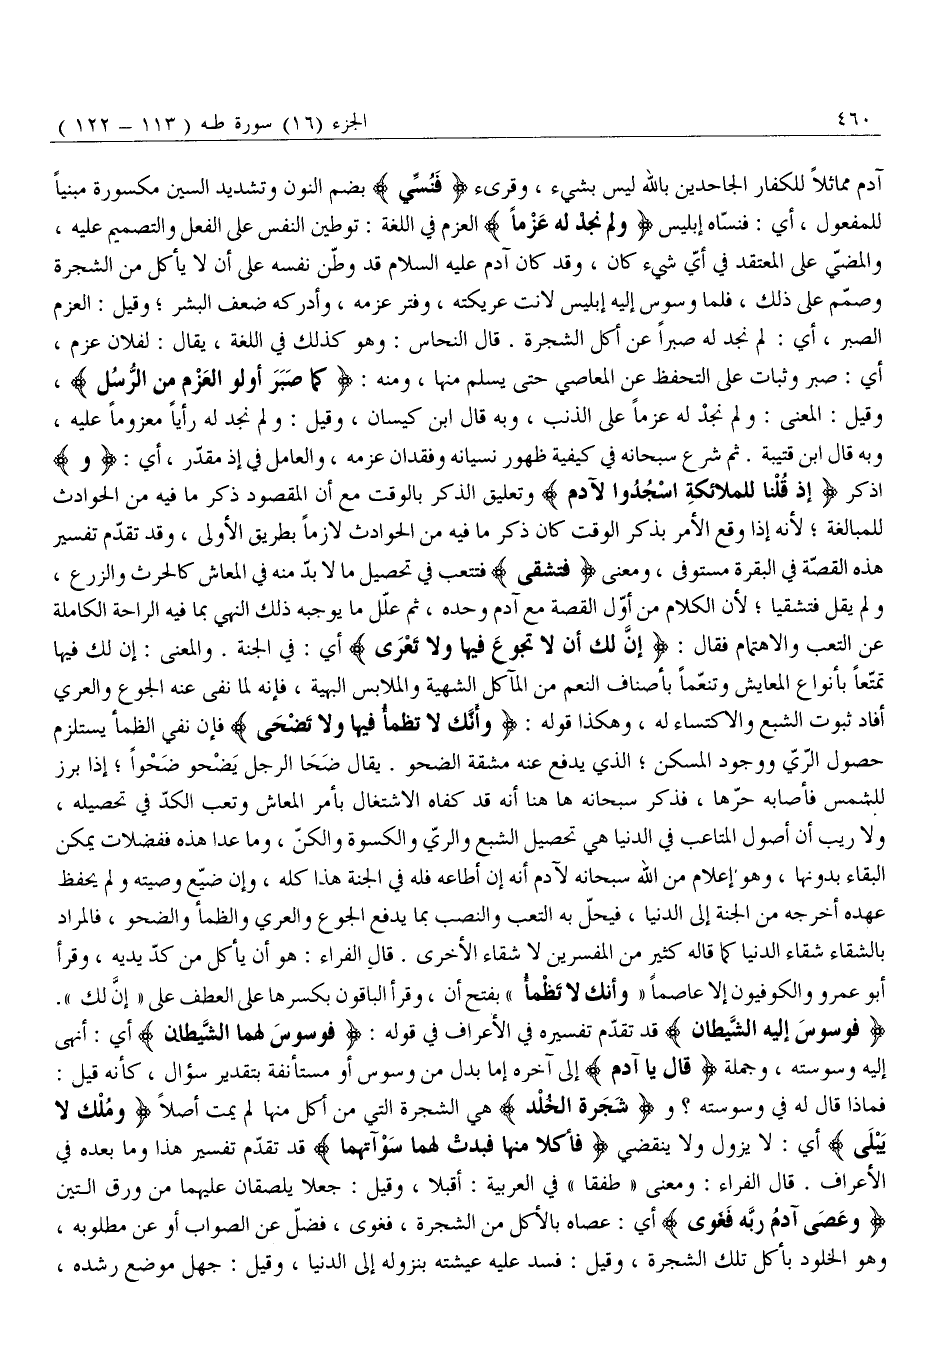 ٤٦٠
الجزء (١٦) سورة طه ( ١١٣ – ١٢٢ )
آدم مماثلاً للكفار الجاحدين بالله ليس بشيء ، وقرىء ﴿ فَنُسِّي ﴾ بضم النون وتشديد السين مكسورة مبنياً
للمفعول ، أي : فنسّاه إبليس ﴿ ولم نجدْ له عَزْماً ﴾ العزم في اللغة : توطين النفس على الفعل والتصميم عليه ،
والمضيّ على المعتقد في أيّ شيء كان ، وقد كان آدم عليه السلام قد وطّن نفسه على أن لا يأكل من الشجرة
وصمّم على ذلك ، فلما وسوس إليه إبليس لانت عريكته ، وفتر عزمه ، وأدركه ضعف البشر ؛ وقيل : العزم
الصبر ، أي : لم نجد له صبراً عن أكل الشجرة . قال النحاس : وهو كذلك في اللغة ، يقال : لفلان عزم ،
أي : صبر وثبات على التحفظ عن المعاصي حتى يسلم منها ، ومنه : ﴿ كما صَبَرَ أولو العَزْم من الرُّسُل ﴾ ،
وقيل : المعنى : ولم نجدْ له عزماً على الذنب ، وبه قال ابن كيسان ، وقيل : ولم نجد له رأياً معزوماً عليه ،
وبه قال ابن قتيبة . ثم شرع سبحانه في كيفية ظهور نسيانه وفقدان عزمه ، والعامل في إذ مقدّر ، أي : ﴿ و ﴾
اذكر ﴿ إذ قُلْنا للملائكةِ اسْجُدُوا لآدم ﴾ وتعليق الذكر بالوقت مع أن المقصود ذكر ما فيه من الحوادث
للمبالغة ؛ لأنه إذا وقع الأمر بذكر الوقت كان ذكر ما فيه من الحوادث لازماً بطريق الأولى ، وقد تقدّم تفسير
هذه القصّة في البقرة مستوفى ، ومعنى ﴿ فتشقى ﴾ فتتعب في تحصيل ما لا بدّ منه في المعاش كالحرث والزرع ،
ولم يقل فتشقيا ؛ لأن الكلام من أوّل القصة مع آدم وحده ، ثم علّل ما يوجبه ذلك النهي بما فيه الراحة الكاملة
عن التعب والاهتمام فقال : ﴿ إنَّ لك أن لا تجوعَ فيها ولا تَعْرَى ﴾ أي : في الجنة . والمعنى : إن لك فيها
تمتّعاً بأنواع المعايش وتنعّماً بأصناف النعم من المآكل الشهية والملابس البهية ، فإنه لما نفى عنه الجوع والعري
أفاد ثبوت الشبع والاكتساء له ، وهكذا قوله : ﴿ وأنَّك لا تظمأُ فيها ولا تَضْحَى ﴾ فإن نفي الظمأ يستلزم
حصول الرّيّ ووجود المسكن ؛ الذي يدفع عنه مشقة الضحو . يقال ضَحَا الرجل يَضْحو ضَحْواً ؛ إذا برز
للشمس فأصابه حرّها ، فذكر سبحانه ها هنا أنه قد كفاه الاشتغال بأمر المعاش وتعب الكدّ في تحصيله ،
ولا ريب أن أصول المتاعب في الدنيا هي تحصيل الشبع والريّ والكسوة والكنّ ، وما عدا هذه ففضلات يمكن
البقاء بدونها ، وهو إعلام من الله سبحانه لآدم أنه إن أطاعه فله في الجنة هذا كله ، وإن ضيّع وصيته ولم يحفظ
عهده أخرجه من الجنة إلى الدنيا ، فيحلّ به التعب والنصب بما يدفع الجوع والعري والظمأ والضحو ، فالمراد
بالشقاء شقاء الدنيا كما قاله كثير من المفسرين لا شقاء الأخرى . قال الفراء : هو أن يأكل من كدّ يديه ، وقرأ
أبو عمرو والكوفيون إلا عاصماً « وأنك لا تَظْمأُ » بفتح أن ، وقرأ الباقون بكسرها على العطف على « إنَّ لك ».
﴿ فوسوسَ إليه الشَّيطان ﴾ قد تقدّم تفسيره في الأعراف في قوله : ﴿ فوسوسَ لهما الشَّيطان ﴾ أي : أنهى
إليه وسوسته ، وجملة ﴿ قال يا آدم ﴾ إلى آخره إما بدل من وسوس أو مستأنفة بتقدير سؤال ، كأنه قيل :
فماذا قال له في وسوسته ؟ و ﴿ شَجَرة الخُلْد ﴾ هي الشجرة التي من أكل منها لم يمت أصلاً ﴿ ومُلْك لا
يَبْلَى ﴾ أي : لا يزول ولا ينقضي ﴿ فأكلا منها فبدتْ لهما سَوْآتهما ﴾ قد تقدّم تفسير هذا وما بعده في
الأعراف . قال الفراء : ومعنى « طفقا » في العربية : أقبلا ، وقيل : جعلا يلصقان عليهما من ورق التين
﴿ وعَصَى آدمُ ربَّه فَغَوى ﴾ أي : عصاه بالأكل من الشجرة ، فغوى ، فضلّ عن الصواب أو عن مطلوبه ،
وهو الخلود بأكل تلك الشجرة ، وقيل : فسد عليه عيشته بنزوله إلى الدنيا ، وقيل : جهل موضع رشده ،